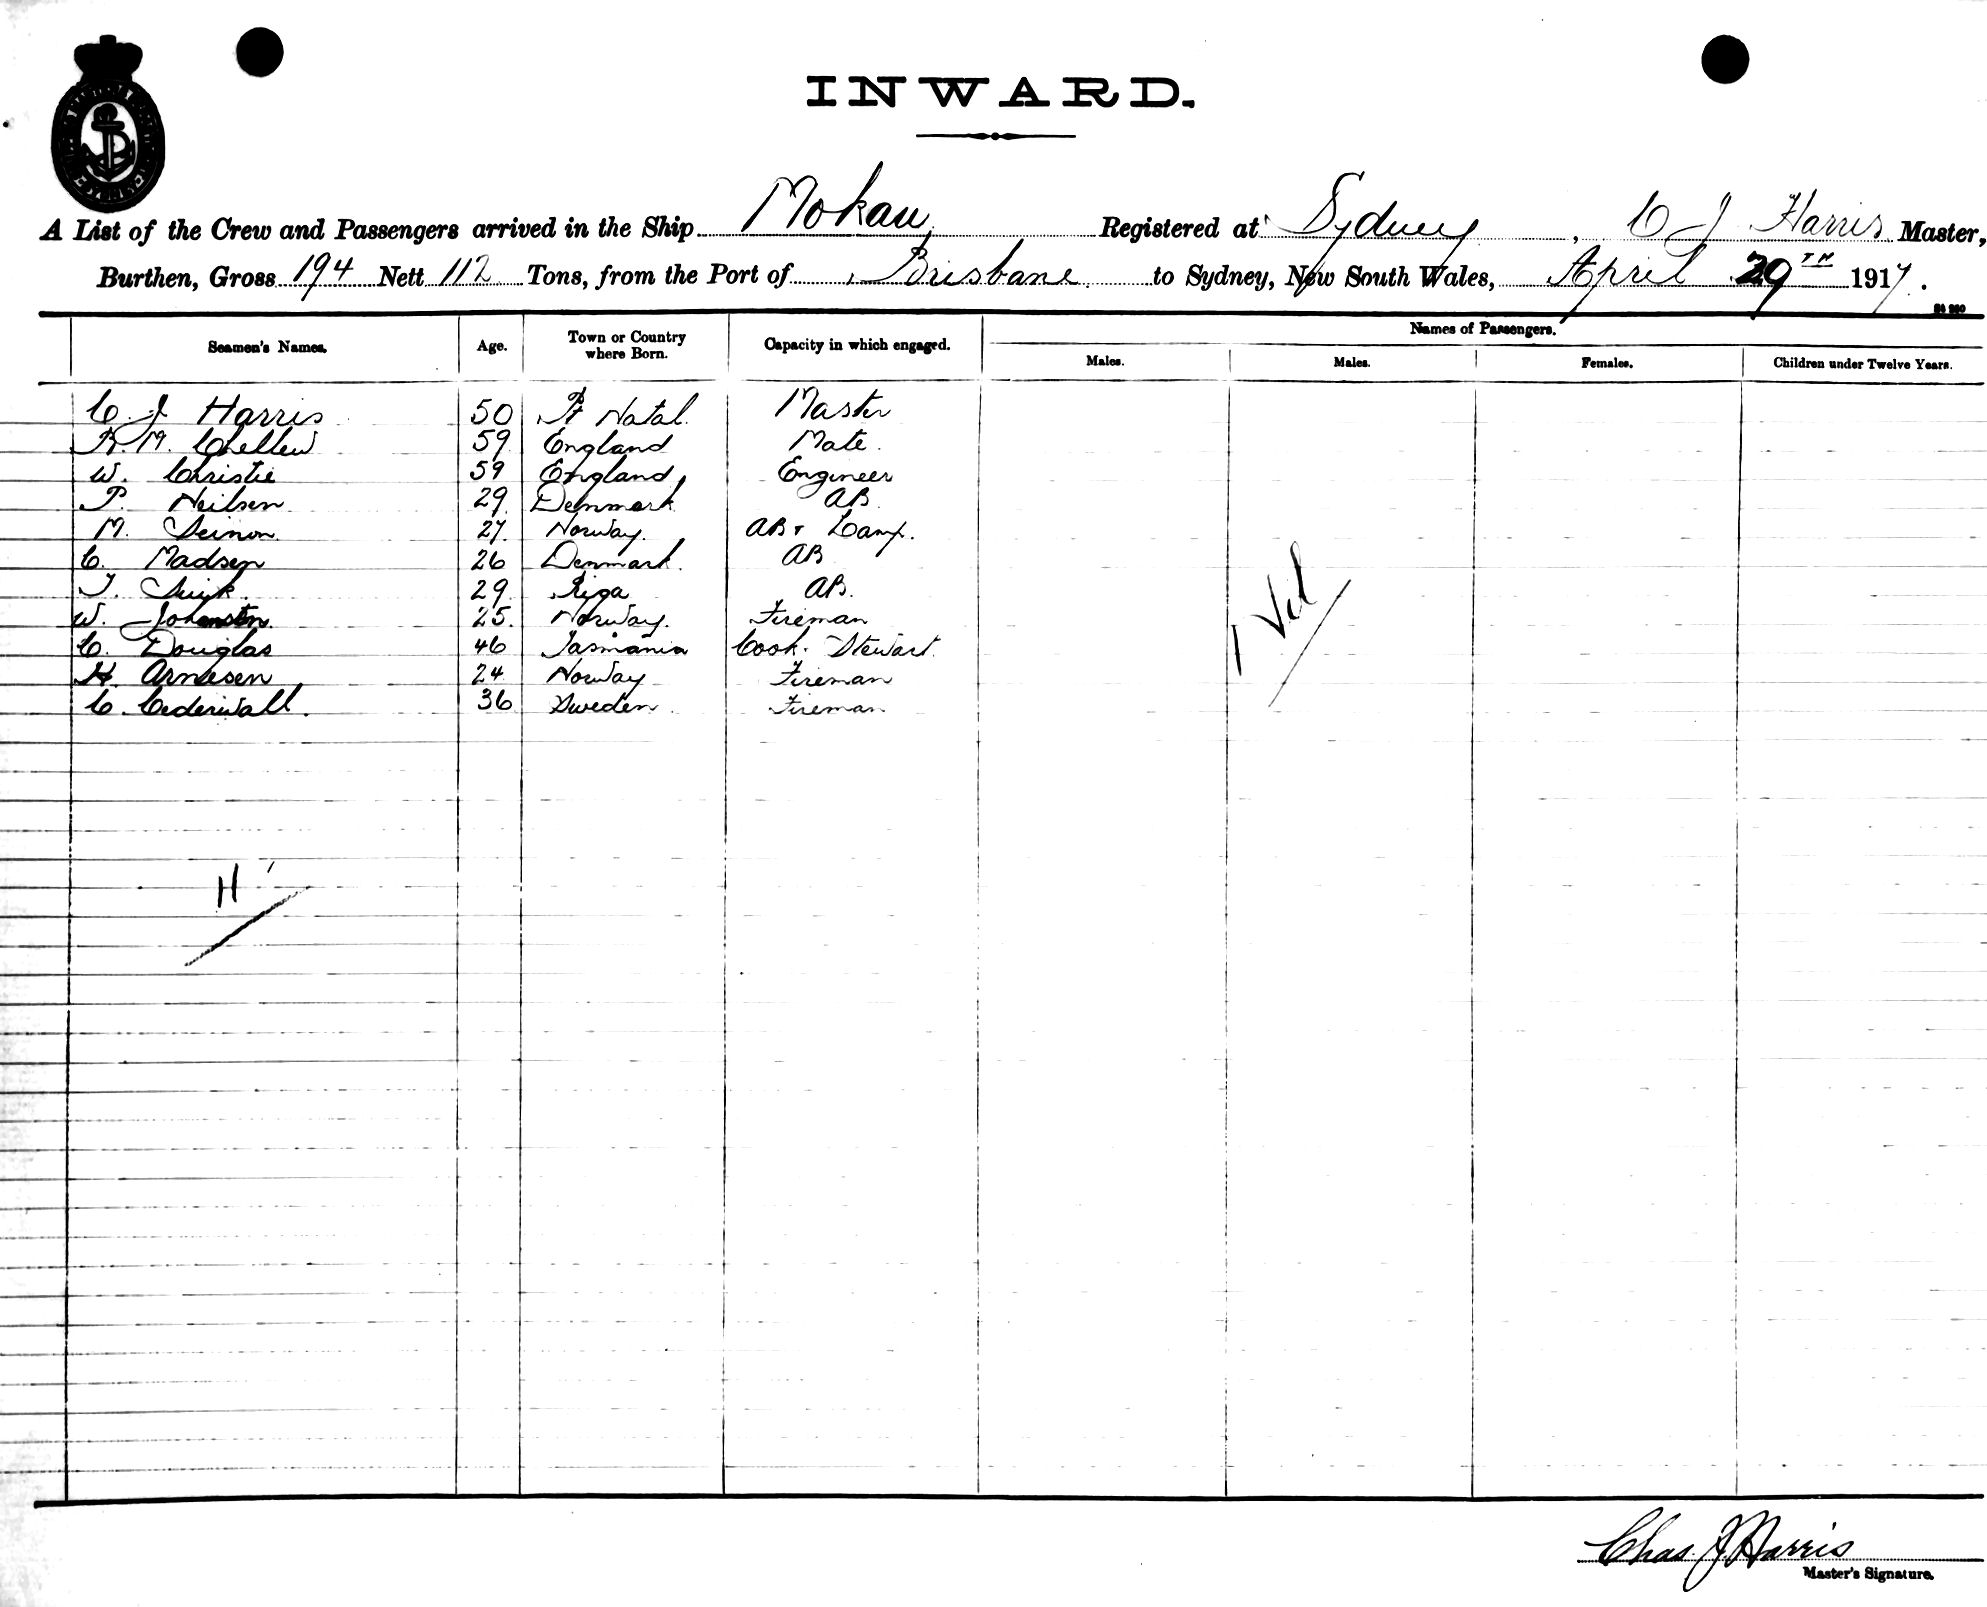 INWARD.
A List of the Crew and Passengers arrived in the Ship Mokau Registered at Sydney, C J Harris Master,
Burthen, Gross 194 Nett 112 Tons, from the Port of Brisbane to Sydney, New South Wales, April 29TH 1917.
Names of Passengers.
Seamen's Names. Age. Town or Country where Born. Capacity in which engaged. Males. Males. Females. Children under Twelve Years.
C. J Harris 50 Pt Natal. Master
R. M. Chellew 59 England Mate.
W. Christie 59 England Engineer
P. Neilsen 29 Denmark AB
M. 27. Norway. AB + Lamp.
C. Madsen 26 Denmark. AB
29 Riga AB.
W. Johansen 25. Norway. Fireman
C. Douglas 46 Tasmania Cook. Stewart.
H. Arnesen 24 Norway Fireman
C. Cederwall. 36 Sweden. Fireman
Chas. J Harris
Master's Signature.